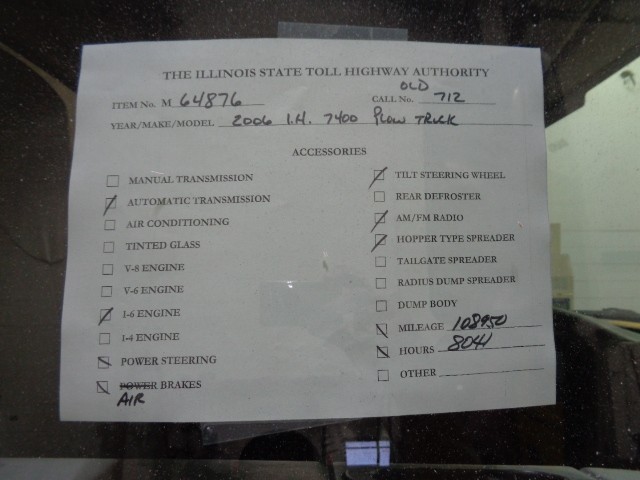 THE ILLINOIS STATE TOLL HIGHWAY AUTHORITY
OLD
ITEM No. M 64876 CALL No. 712
YEAR/MAKE/MODEL 2006 I.H. 7400 Plow TRUCK
ACCESSORIES
MANUAL TRANSMISSION
AUTOMATIC TRANSMISSION
AIR CONDITIONING
TINTED GLASS
V-8 ENGINE
V-6 ENGINE
I-6 ENGINE
I-4 ENGINE
POWER STEERING
POWER BRAKES
AIR
TILT STEERING WHEEL
REAR DEFROSTER
AM/FM RADIO
HOPPER TYPE SPREADER
TAILGATE SPREADER
RADIUS DUMP SPREADER
DUMP BODY
MILEAGE 108950
HOURS 8041
OTHER